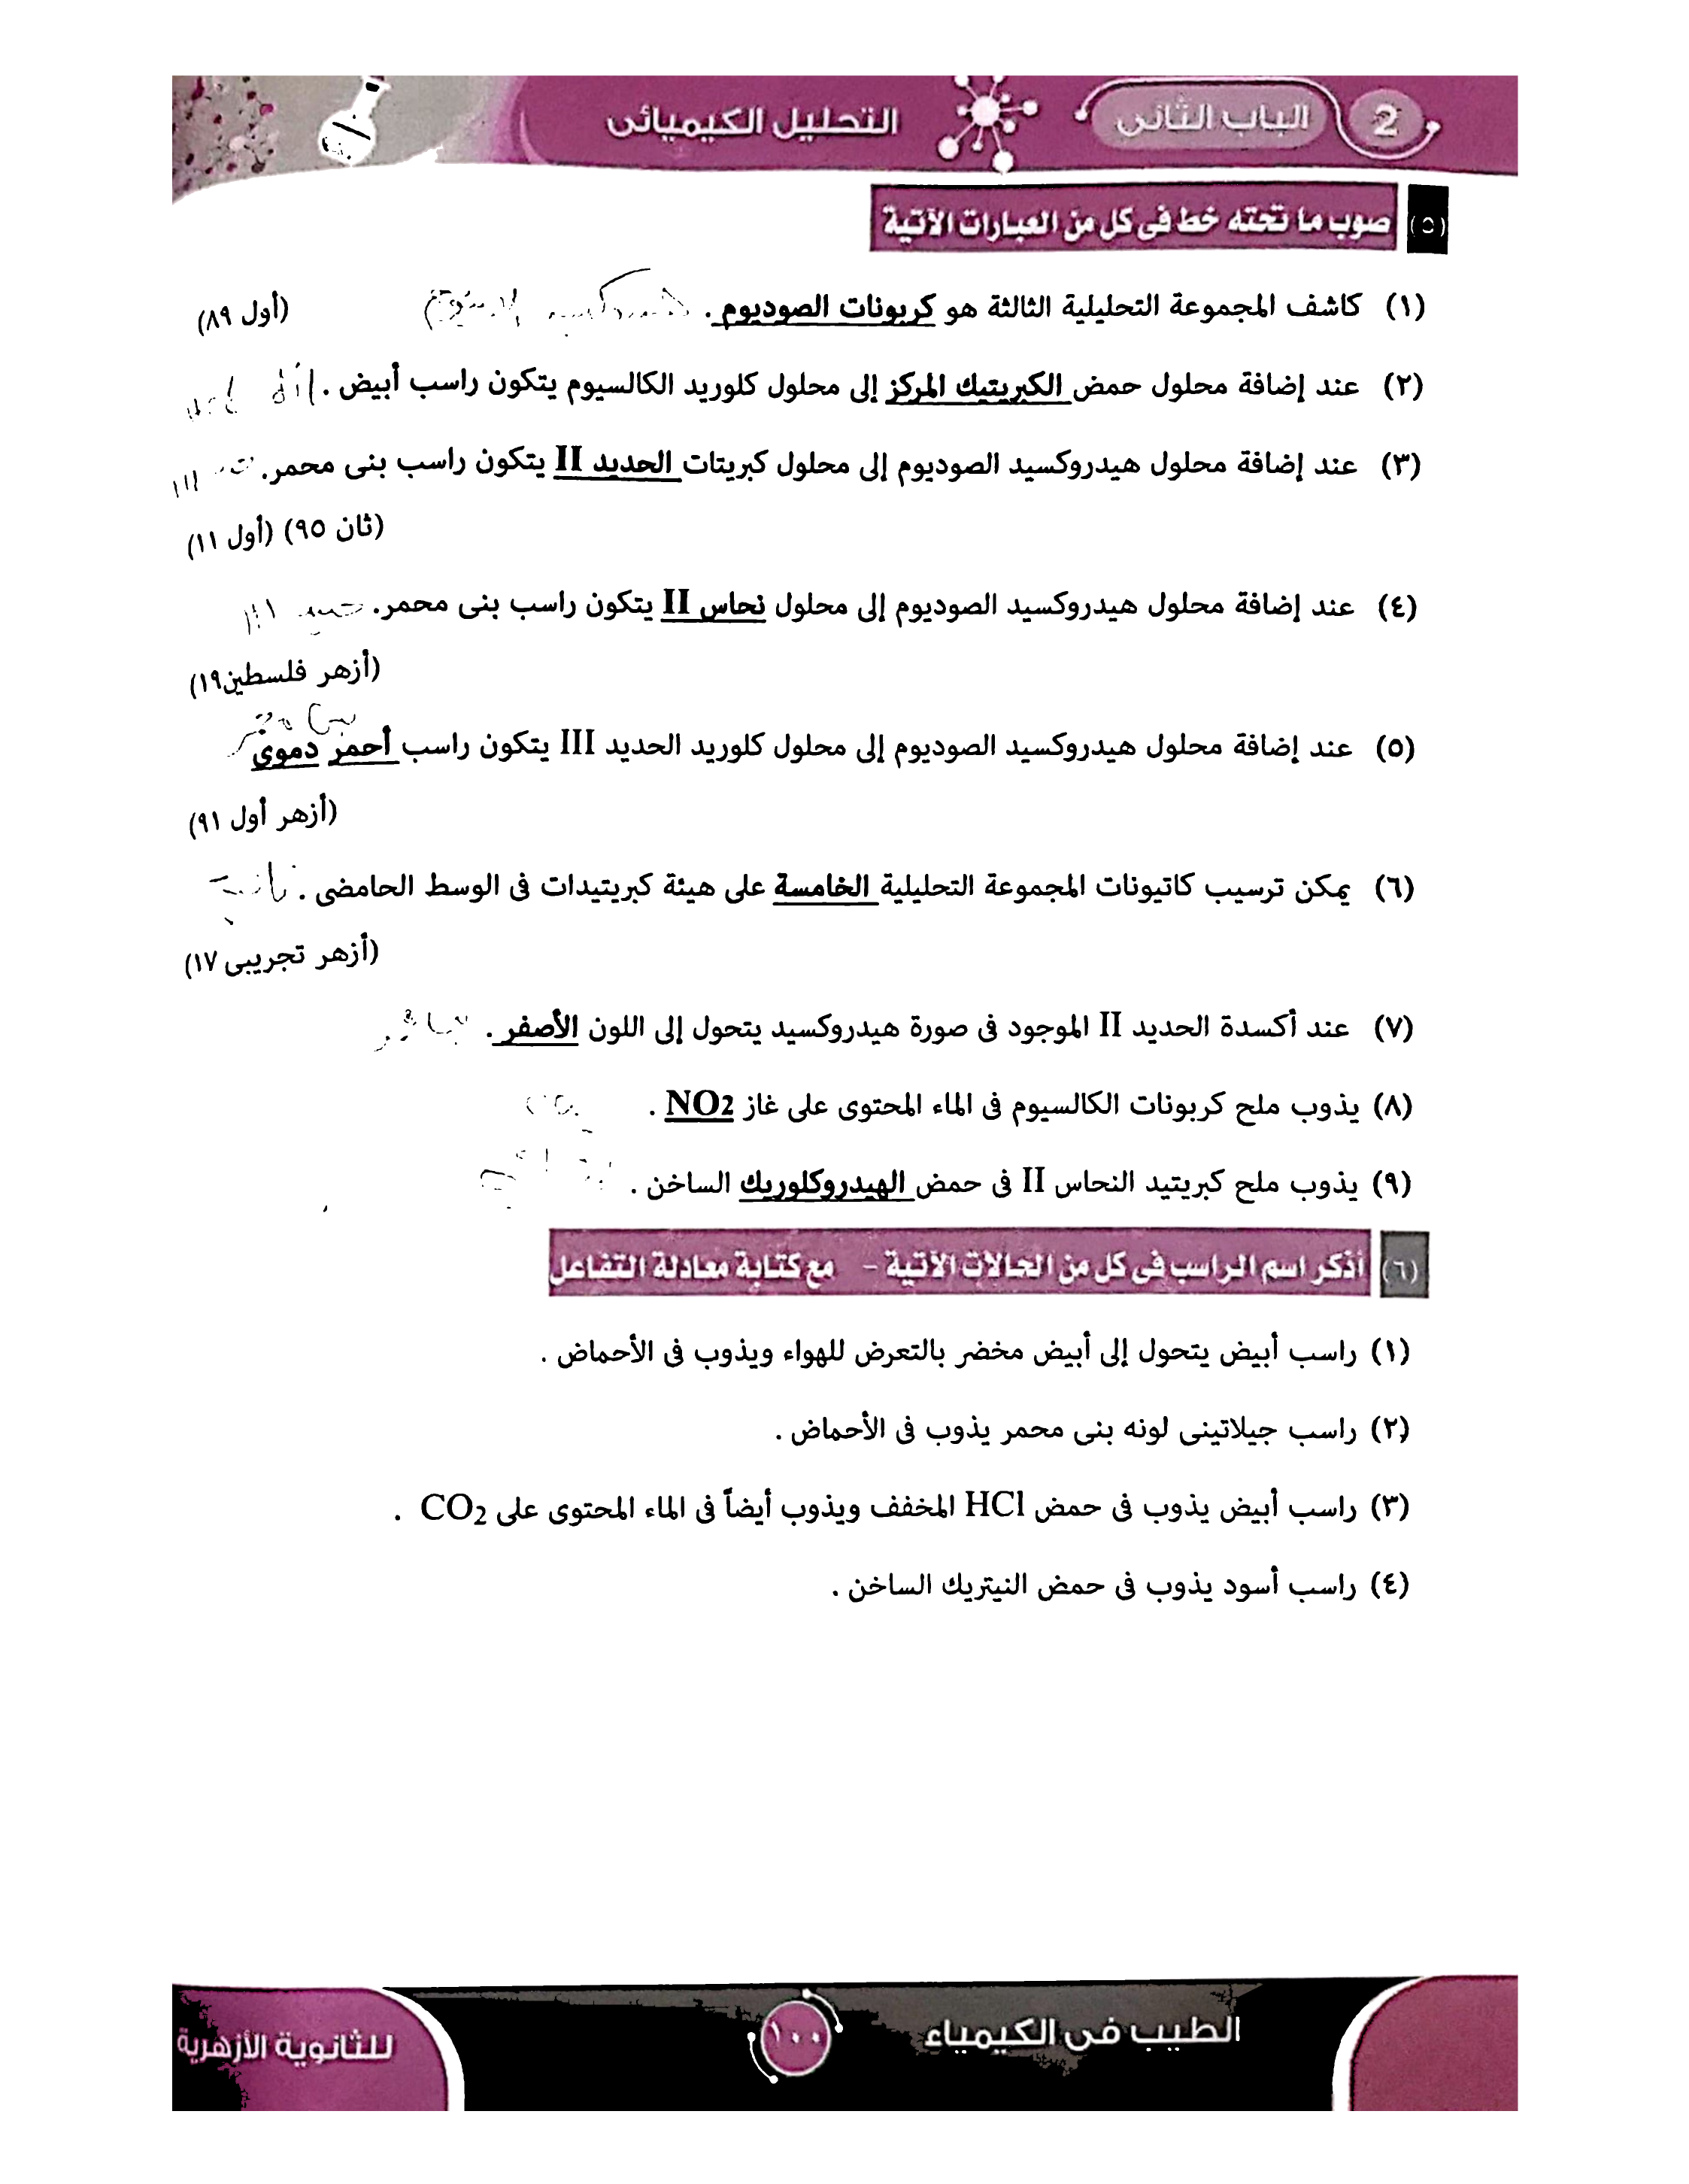 2 الباب الثانى التحليل الكيميائى
(٥) صوب ما تحته خط فى كل من العبارات الآتية
(١) كاشف المجموعة التحليلية الثالثة هو كربونات الصوديوم . (أول ٨٩)
(٢) عند إضافة محلول حمض الكبريتيك المركز إلى محلول كلوريد الكالسيوم يتكون راسب أبيض .
(٣) عند إضافة محلول هيدروكسيد الصوديوم إلى محلول كبريتات الحديد II يتكون راسب بنى محمر. III
(ثان ٩٥) (أول ١١)
(٤) عند إضافة محلول هيدروكسيد الصوديوم إلى محلول نحاس II يتكون راسب بنى محمر. حديد III
(أزهر فلسطين١٩)
بنى محمر
(٥) عند إضافة محلول هيدروكسيد الصوديوم إلى محلول كلوريد الحديد III يتكون راسب أحمر دموى
(أزهر أول ٩١)
(٦) يمكن ترسيب كاتيونات المجموعة التحليلية الخامسة على هيئة كبريتيدات فى الوسط الحامضى .
(أزهر تجريبى ١٧)
(٧) عند أكسدة الحديد II الموجود فى صورة هيدروكسيد يتحول إلى اللون الأصفر .
(٨) يذوب ملح كربونات الكالسيوم فى الماء المحتوى على غاز NO2 .
(٩) يذوب ملح كبريتيد النحاس II فى حمض الهيدروكلوريك الساخن .
(٦) أذكر اسم الراسب فى كل من الحالات الآتية - مع كتابة معادلة التفاعل
(١) راسب أبيض يتحول إلى أبيض مخضر بالتعرض للهواء ويذوب فى الأحماض .
(٢) راسب جيلاتينى لونه بنى محمر يذوب فى الأحماض .
(٣) راسب أبيض يذوب فى حمض HCl المخفف ويذوب أيضاً فى الماء المحتوى على CO2 .
(٤) راسب أسود يذوب فى حمض النيتريك الساخن .
الطبيب فى الكيمياء ١٠٠ للثانوية الأزهرية